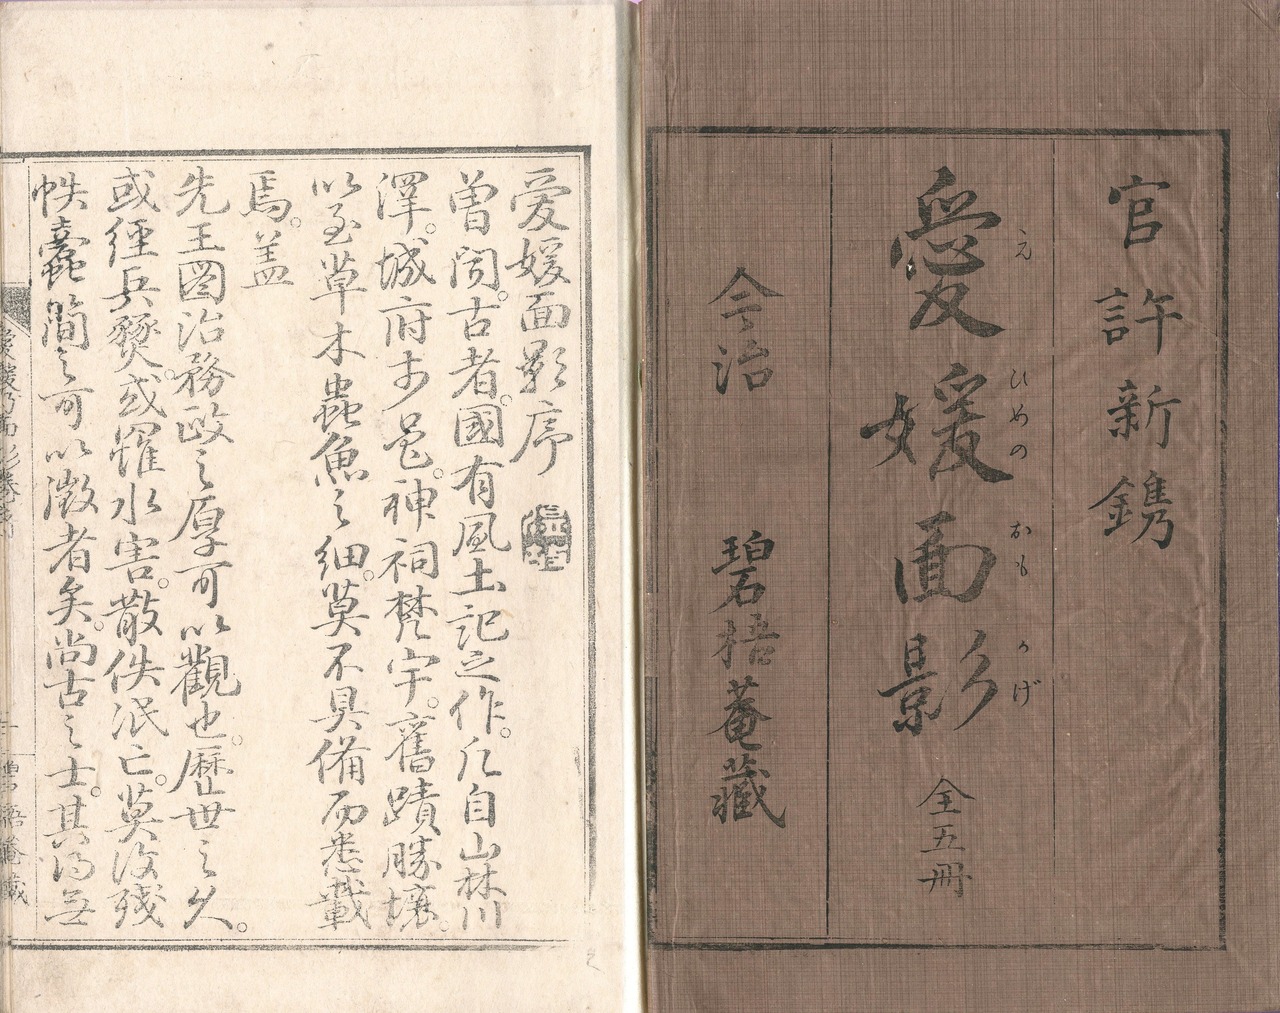 官許新鐫
愛媛面影 全五冊
えひめのおもかげ
今治 碧梧菴藏
愛媛面影序
曽聞。古者。國有風土記之作。凡自山林川
澤。城府市邑。神祠梵宇。舊蹟勝壤。
以至草木蟲魚之細。莫不具備而悉載
焉。盖
先王圖治務政之厚可以觀也。歷世之久。
或經兵燹。或罹水害。散佚泯亡。莫復殘
帙蠹簡之可以徵者矣。尚古之士。其得無
碧梧菴藏